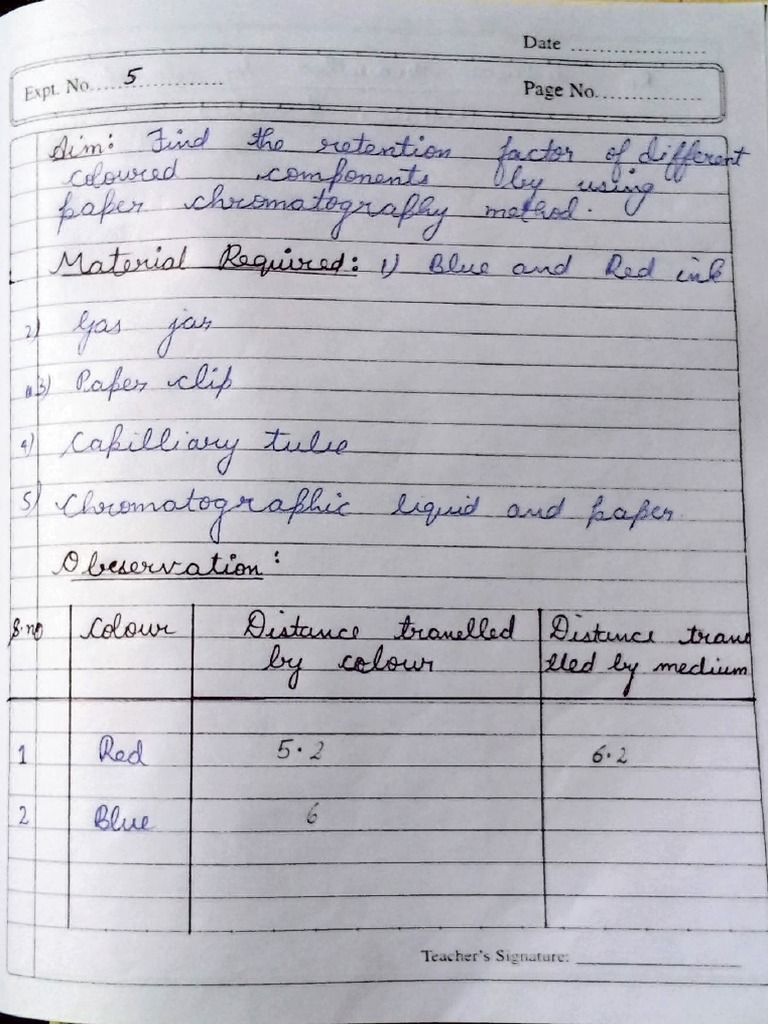 Date ........................
Expt. No. ....5................
Page No. ...................
Aim: Find the retention factor of different
coloured components by using
paper chromatography method.
Material Required: 1) Blue and Red ink
2) Gas jar
3) Paper clip
4) Capilliary tube
5) Chromatographic liquid and paper
Observation:
S.no Colour Distance travelled Distance trave
by colour lled by medium
1 Red 5.2 6.2
2 Blue 6
Teacher's Signature: ____________________